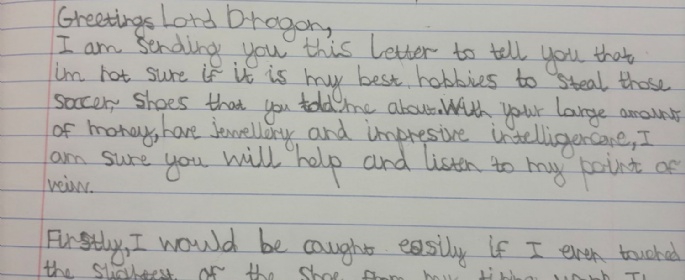 Greetings Lord Dragon,
I am sending you this letter to tell you that
im not sure if it is my best hobbies to steal those
soccer shoes that you told me about. With your large amount
of money, have jewellery and impresive intelligencare, I
am sure you will help and listen to my point of
veiw.
Firstly, I would be caught easily if I even touched
the slightest of the shoe from